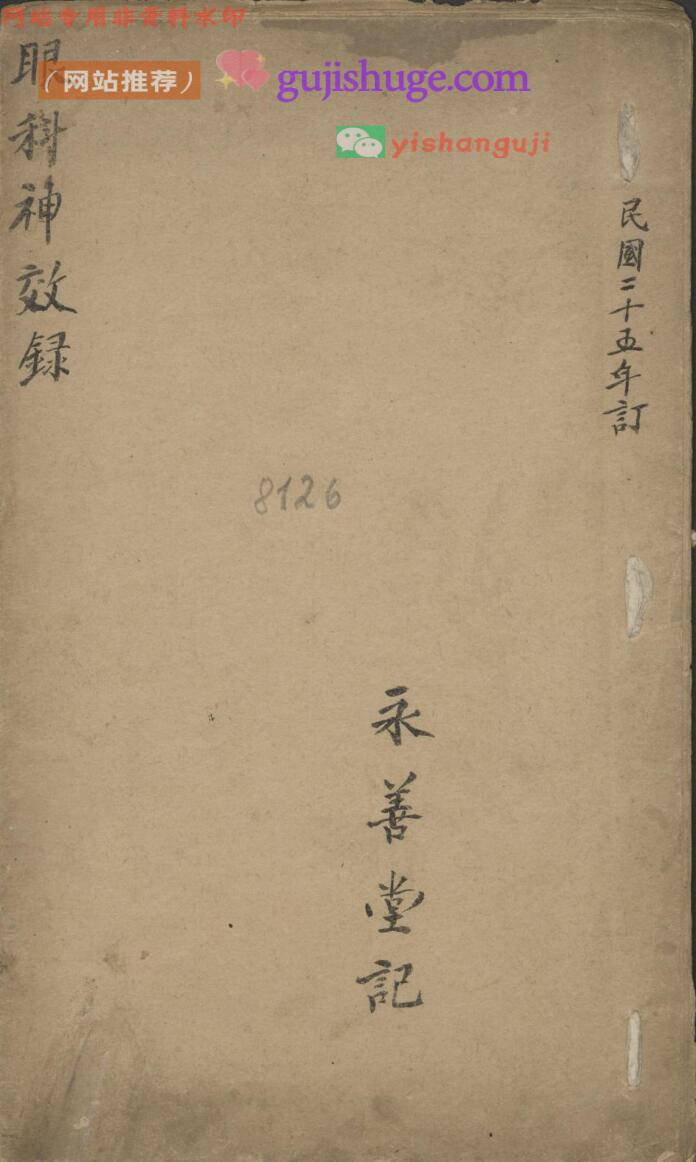 网站专用非资料水印
(网站推荐)
gujishuge.com
yishanguji
民國二十五年訂
眼科神效録
8126
永善堂記